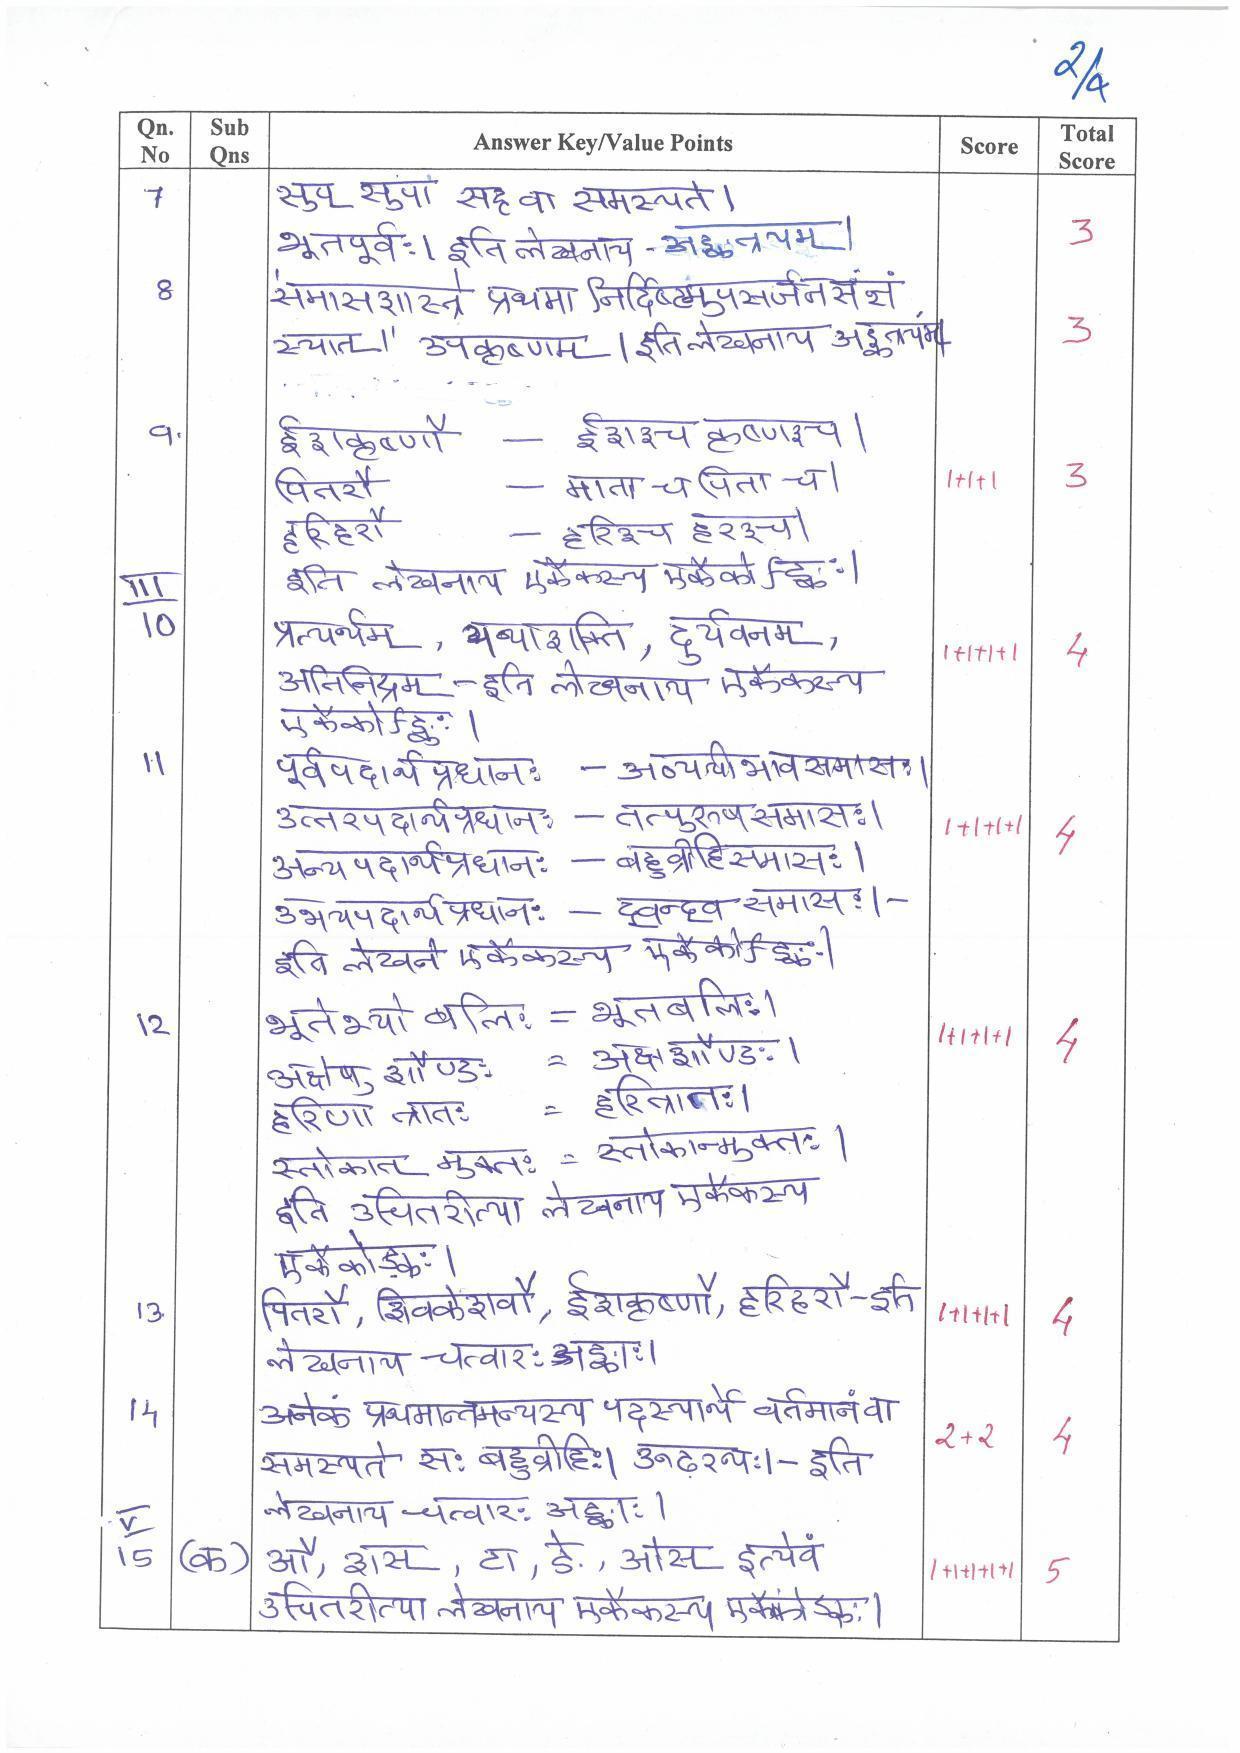 2/4
Qn. No Sub Qns Answer Key/Value Points Score Total Score
7 सुप् सुपा सह वा समस्यते।
भूतपूर्वः। इति लेखनाय - अङ्कत्रयम्। 3
8 "समासशास्त्रे प्रथमा निर्दिष्टमुपसर्जनसंज्ञं
स्यात्" उपकृष्णम्। इति लेखनाय अङ्कत्रयम्। 3
9. ईशकृष्णौ — ईशश्च कृष्णश्च।
पितरौ — माता च पिता च। 1+1+1 3
हरिहरौ — हरिश्च हरश्च।
इति लेखनाय एकैकस्य एकैकोऽङ्कः।
III
10 प्रत्यर्थम्, यथाशक्ति, दुर्यवनम्, 1+1+1+1 4
अतिनिद्रम् - इति लेखनाय एकैकस्य
एकैकोऽङ्कः।
11 पूर्वपदार्थप्रधानः - अव्ययीभावसमासः।
उत्तरपदार्थप्रधानः - तत्पुरुषसमासः। 1+1+1+1 4
अन्यपदार्थप्रधानः - बहुव्रीहिसमासः।
उभयपदार्थप्रधानः - द्वन्द्वसमासः।-
इति लेखने एकैकस्य एकैकोऽङ्कः।
12 भूतेभ्यो बलिः = भूतबलिः। 1+1+1+1 4
अक्षेषु शौण्डः = अक्षशौण्डः।
हरिणा त्रातः = हरित्रातः।
स्तोकात् मुक्तः = स्तोकान्मुक्तः।
इति उचितरीत्या लेखनाय एकैकस्य
एकैकोङ्कः।
13. पितरौ, शिवकेशवौ, ईशकृष्णौ, हरिहरौ - इति 1+1+1+1 4
लेखनाय चत्वारः अङ्काः।
14 अनेकं प्रथमान्तमन्यस्य पदस्यार्थे वर्तमानं वा
समस्यते सः बहुव्रीहिः। ऊढरथः।- इति 2+2 4
लेखनाय चत्वारः अङ्काः।
V
15 (क) औ, शस्, टा, ङे, ओस् इत्येवं 1+1+1+1+1 5
उचितरीत्या लेखनाय एकैकस्य एकैकोङ्कः।